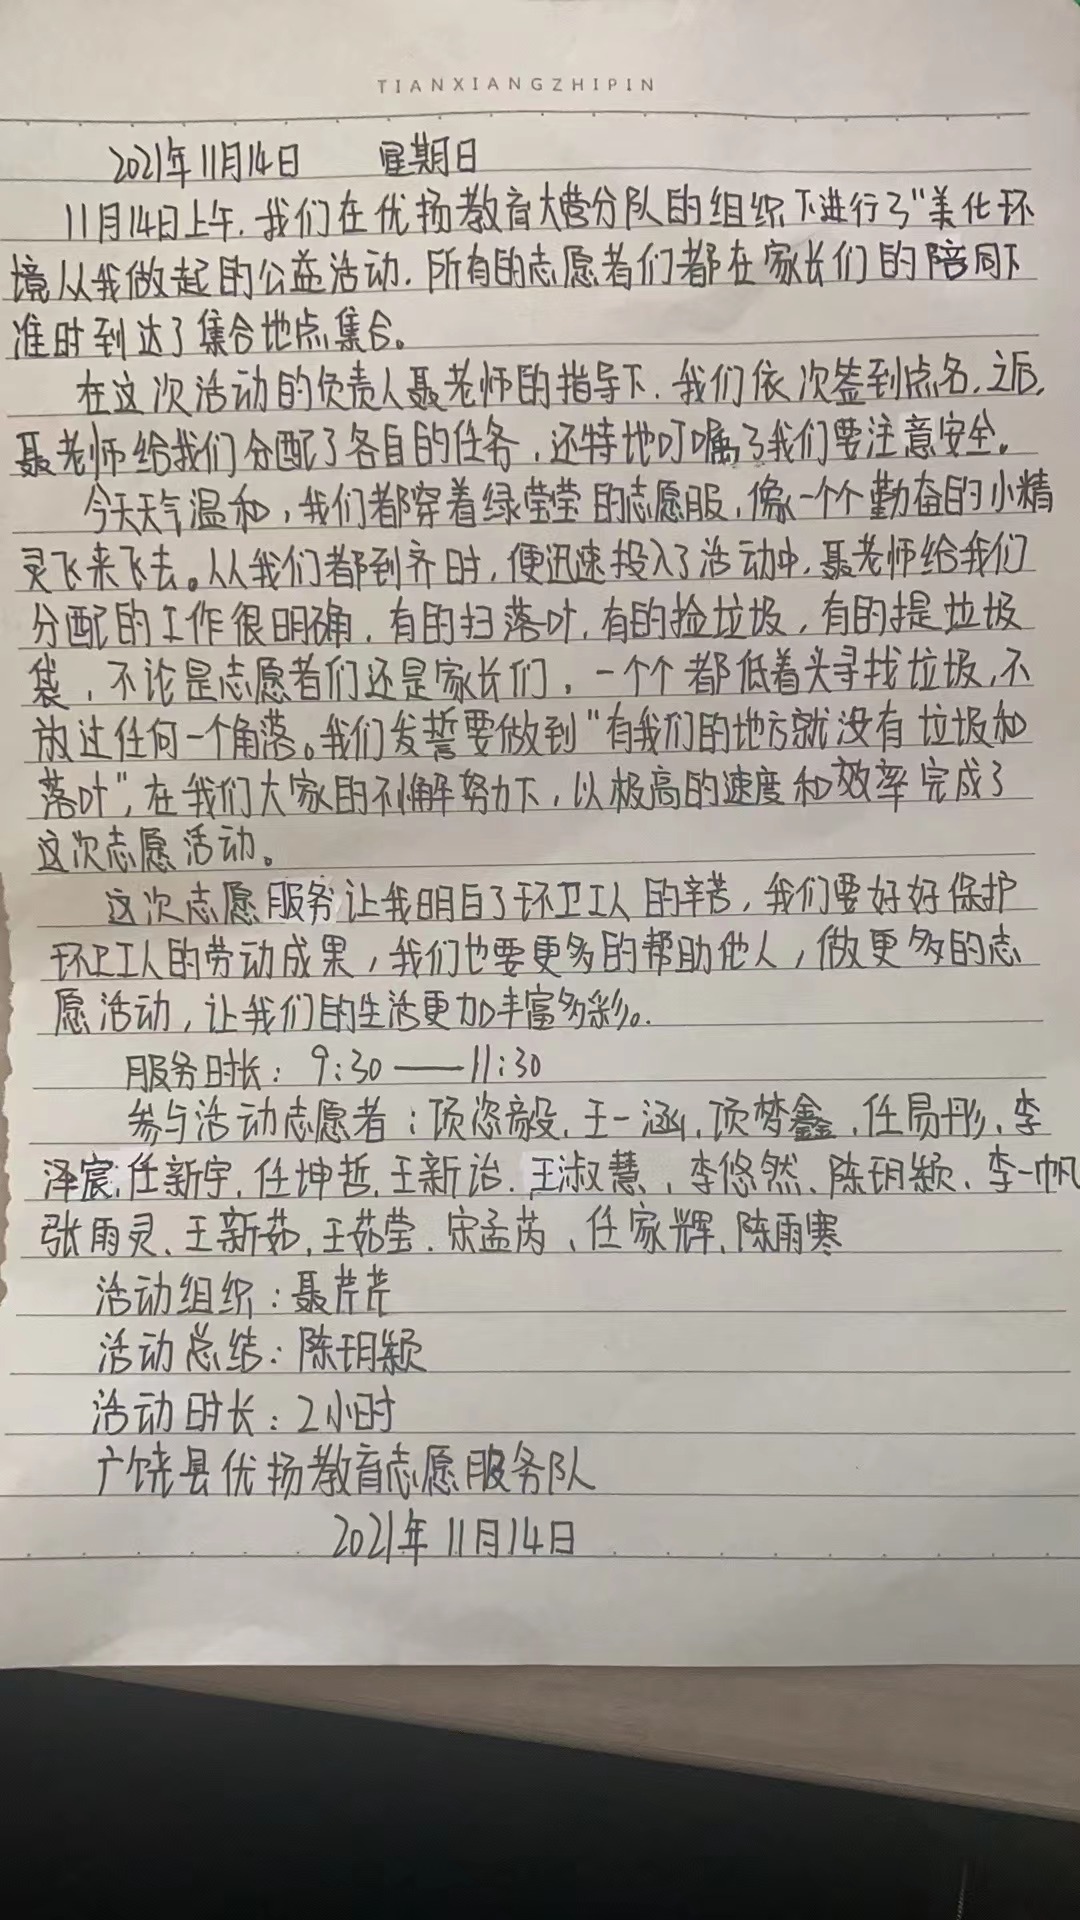 TIANXIANGZHIPIN
2021年11月14日 星期日
11月14日上午,我们在优扬教育大营分队的组织下进行了"美化环
境从我做起的公益活动.所有的志愿者们都在家长们的陪同下
准时到达了集合地点集合。
在这次活动的负责人聂老师的指导下.我们依次签到点名.之后,
聂老师给我们分配了各自的任务,还特地叮嘱了我们要注意安全。
今天天气温和,我们都穿着绿莹莹的志愿服,像一个个勤奋的小精
灵飞来飞去。从从我们都到齐时,便迅速投入了活动中.聂老师给我们
分配的工作很明确,有的扫落叶,有的捡垃圾,有的提垃圾
袋,不论是志愿者们还是家长们,一个个都低着头寻找垃圾,不
放过任何一个角落。我们发誓要做到"有我们的地方就没有垃圾和
落叶",在我们大家的不懈努力下,以极高的速度和效率完成了
这次志愿活动。
这次志愿服务让我明白了环卫工人的辛苦,我们要好好保护
环卫工人的劳动成果,我们也要更多的帮助他人,做更多的志
愿活动,让我们的生活更加丰富多彩。
服务时长:9:30——11:30
参与活动志愿者:项恣毅、王一涵、项梦鑫、任易彤、李
泽宸、任新宇、任坤哲、王新诒、王淑慧、李悠然、陈玥颖、李一帆
张雨灵、王新茹、王茹莹、宋孟芮、任家辉、陈雨寒
活动组织:聂芹芹
活动总结:陈玥颖
活动时长:2小时
广饶县优扬教育志愿服务队
2021年11月14日